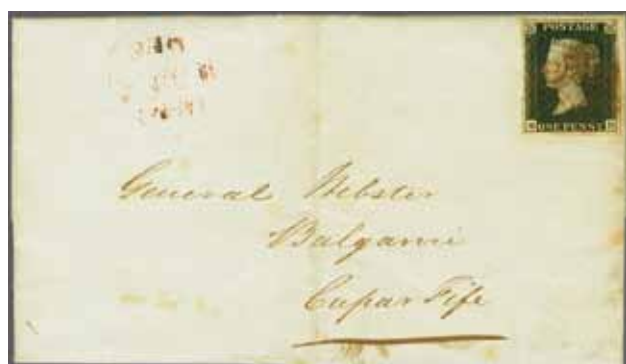 POSTAGE
ONE PENNY
General Webster
Balgarvie
Cupar Fife